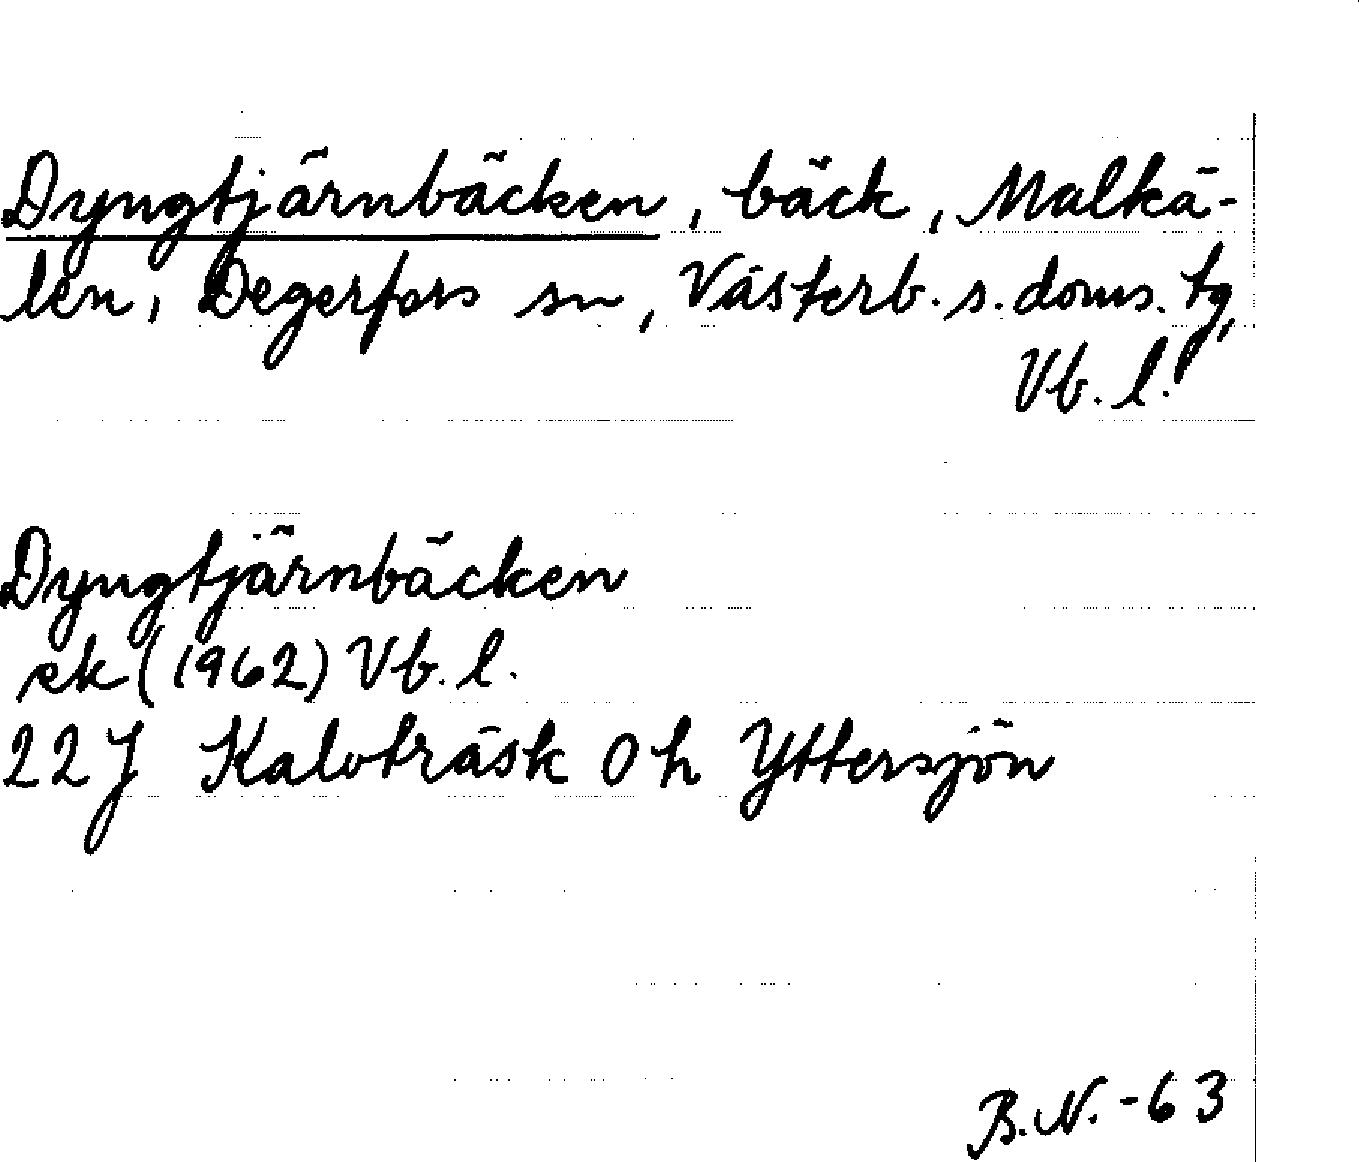 Dyngtjärnbäcken, bäck, Malkä-
len, Degerfors sn, Västerb. s. doms. tg,
Vb. l.
Dyngtjärnbäcken
ek (1962) Vb. l.
22J Kalvträsk 0 h Yttersjön
B.N. -63